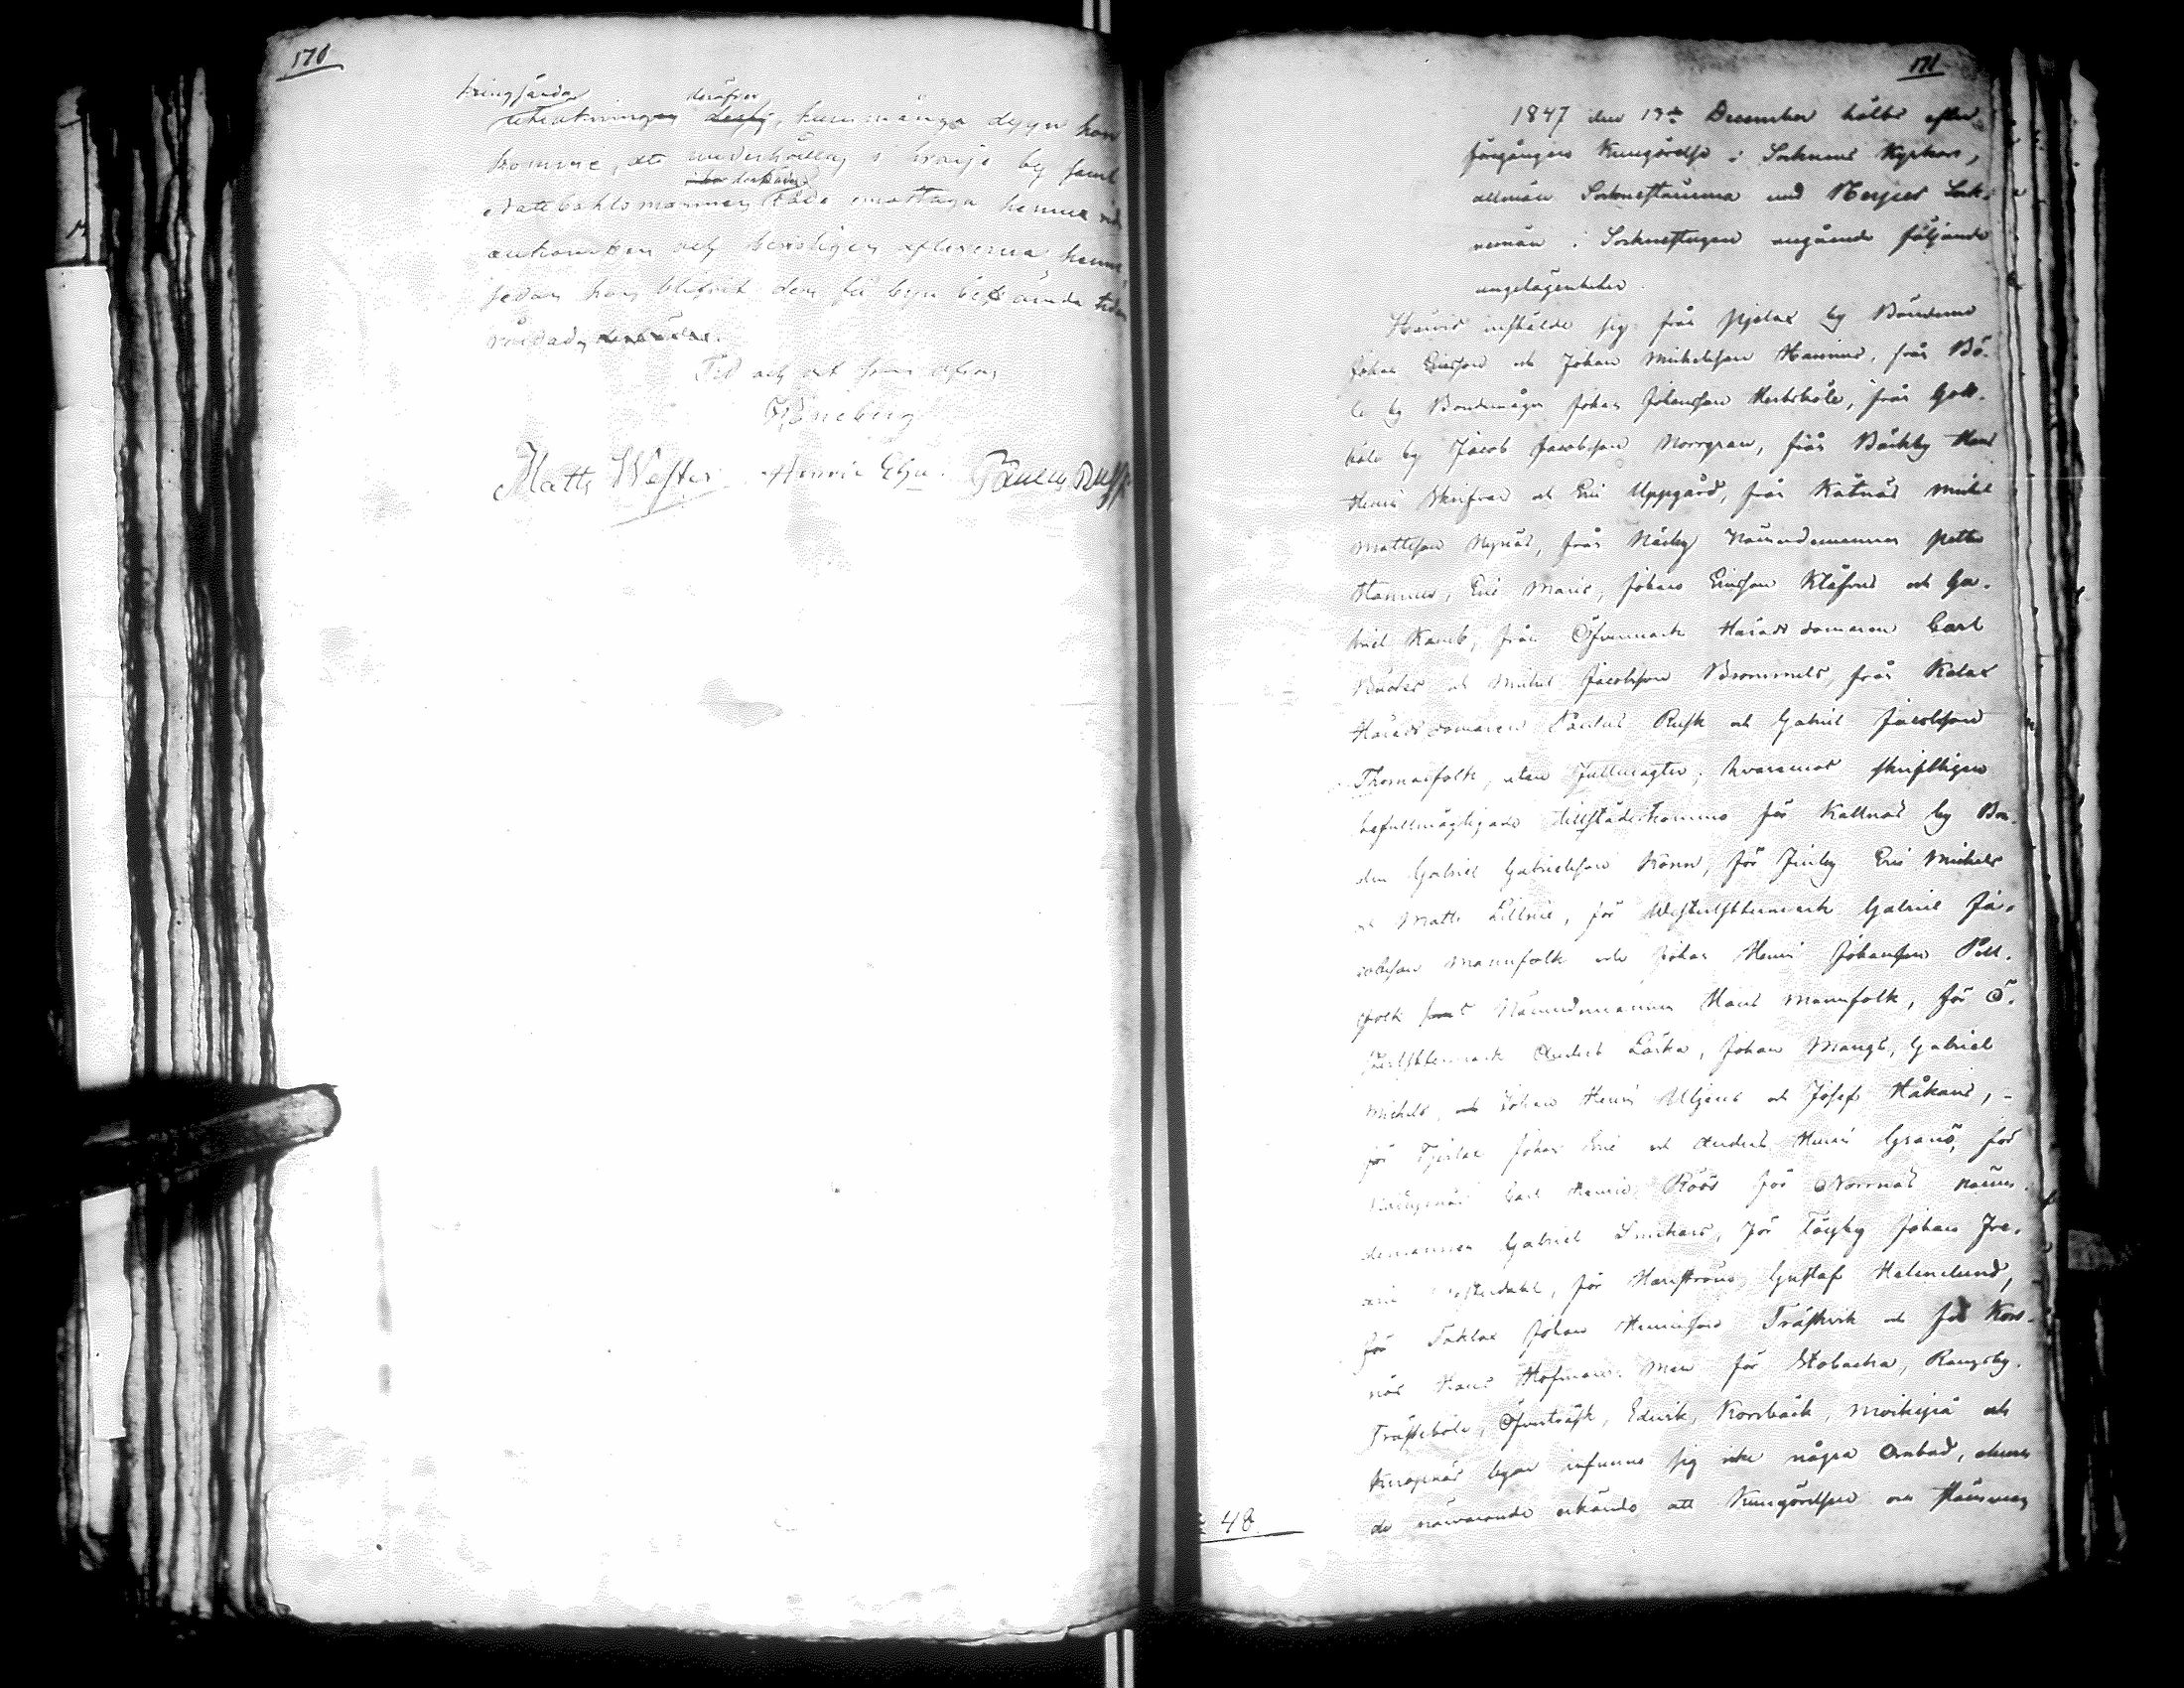 170
kringsända deröfver
uträkningen derty, huru många dygn hon
komme, att underhållas i hvarje by samt
Rotebohlsmannen både emottaga henne vid
ankomsten och besörja henne
sedan hon blifvit den för byn bestämda tiden
vårdad,
Tid och ort som ofvan
Råneberg
Matts Wester Henric Elgn Paulus Rusk
171
1847 den 13de December hölls efter
föregången Kungörelse i Socknens Kyrkor,
allmän Sockenstämma med Nerpes Sock-
nemän i Sockenstugan angående följande
angelägenheter.
Härvid inställde sig från Pjelax by Bönderne
Johan Ericsson och Johan Michelsson Hannus, från Bö-
le by Bondemågen Johan Johansson Herrböle, från Gott-
böle by Jacob Jacobsson Norrgran, från Bäckby Hans
Henric Skrifvar och Eric Uppgård, från Kåtnäs Michel
Mattsson Nynäs, från Näsby Nämndemannen Petter
Hannus, Eric Maris, Johan Ericsson Klåfvus och Ga-
briel Kamb, från Öfvermark Häradsdomaren Carl
Båsk och Michel Jacobsson Brommels, från Kalax
Häradsdomaren Paulus Rusk och Gabriel Jacobsson
Thomasfolk, utan fullmagter; hvaremot skriftligen
befullmägtigade tillstädeskommo för Kallnäs by Bon-
den Gabriel Gabrielsson Könn, för Finby Eric Michels
och Matts Lillsie, för Westerytterma​rk Gabriel Ja-
cobsson Mannfolk och Johan Henric Johansson Pell-
folk samt Nämndemannen Hans Mannfolk, för Ö-
sterytterma​rk Anders Laska, Johan Mangs, Gabriel
Michels, och Johan Henric Uljens och Josef Håkans,
för Tjerlax Johan Eric och Anders Henric Granö, för
Carl Henric Röös för Norrnäs Nämn-
demannen Gabriel Smickars, för Tössby Johan Fre-
dric Westerdahl, för Harrström Gustaf Helenelund,
för Taklax Johan Henricsson Träskvik och för Kors-
näs Hans Hofman. Men för Stobacka, Rangsby,
Träskböle, Öfverträsk, Edsvik, Korsbäck, Moikipää och
Knåpnäs byar infunno sig icke några Ombud, ehuru
de närvarande erkände att Kungörelsen om stämman
§ 48